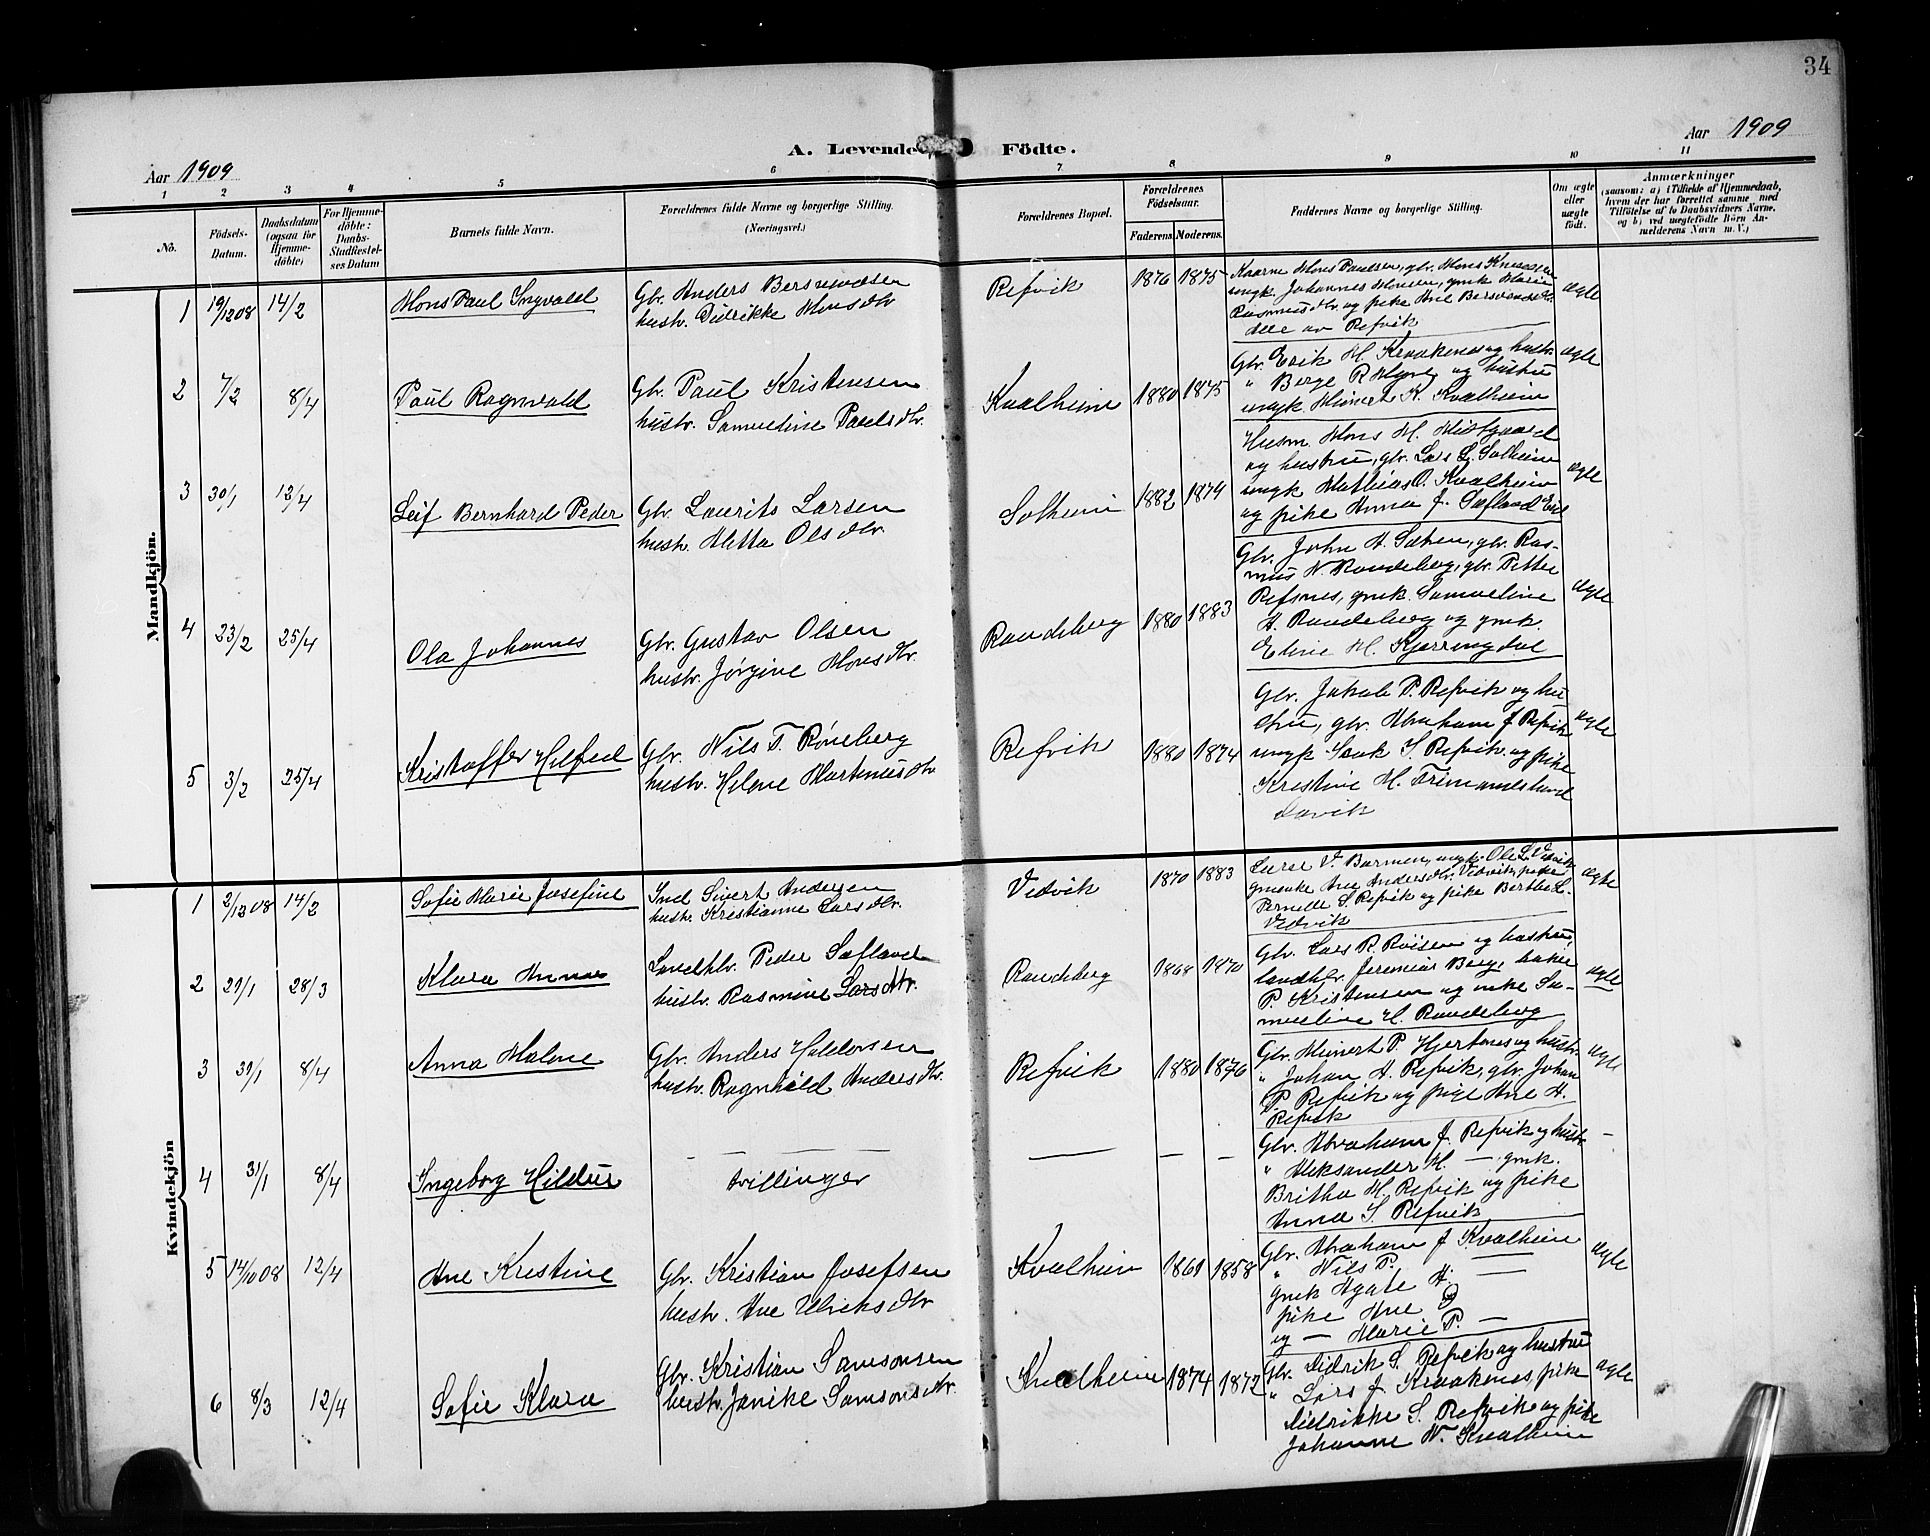 34
Aar 1909
Aar 1909
A. Levende Födte.
1 2 3 4 5 6 7 8 9 10 11
No.
Födsels-Datum.
Daabsdatum (ogsaa for Hjemme-döbte)
For Hjemme-döbte: Daabs-Stadfæstel-ses Datum
Barnets fulde Navn.
Forældrenes fulde Navne og borgerlige Stilling. (Næringsvei.)
Forældrenes Bopæl.
Forældrenes Födselsaar.
Faderens. Moderens.
Faddernes Navne og borgerlige Stilling.
Om ægte eller uægte födt.
Anmærkninger
(saasom: a) i Tilfælde af Hjemmedaab,
hvem der har forrettet samme med
Tilföielse af to Daabsvidners Navne,
og b) ved uægtefödte Börn An-
melderens Navn m. V.)
Mandkjön.
1 19/12 08 14/2 Mons Paul Ingvald
Gbr. Anders Bersvendsen
hustr. Didrikke Monsdtr
Refvik 1876 1875
Rasmusdtr. og pike Ane Bersvendsdtr.
alle av Refvik
ægte
2 7/2 8/4 Paul Ragnvald
Gbr. Paul Kristensen
hustr. Samueline Paulsdtr.
Kvalheim 1880 1875
Gbr. Erik M. Kraakenes og hustr.
ungk. Meinert K. Kvalheim
ægte
3 30/1 12/4 Leif Bernhard Peder
Gbr. Laurits Larsen
hustr. Metta Olsdtr.
Solheim 1882 1874
Husm. Mons M. Midtgaard
og hustru, gbr. Lars L. Solheim
ungk Mathias O. Kvalheim
og pike Anna J. Sætland
ægte
4 23/2 25/4 Ola Johannes
Gbr. Gustav Olsen
hustr. Jørgine Monsdtr.
Raudeberg 1880 1883
Gbr. John A. Sæten, gbr. Ras-
mus N. Raudeberg, gbr. Petter
Refsnes, gmk. Samueline
A. Raudeberg og gmk.
Eline M. Kjerringdal
ægte
5 3/2 25/4 Kristoffer Hilfred
Gbr. Nils T. Røneberg
hustr. Helene Martinusdtr
Refvik 1880 1874
Gbr. Jakob P. Refvik og hu-
stru, gbr. Abraham J. Refvik
ungk Isak S. Refvik og pike
Kristine M.
Davik
ægte
Kvindekjön
1 2/12 08 14/2 Sofie Marie Josefine
Ind Sivert Andersen
hustr. Kristianne Larsdtr.
Vedvik 1870 1883
Lærer V. Barmen, ungk. Ole L. Vedvik
gmenke Ane Andersdtr. Vedvik, pike
Pernille S. Refvik og pike Berthe L.
Vedvik
ægte
2 29/1 28/3 Klara Anna
Landhdlr. Peder Sætland
hustr. Rasmine Larsdtr.
Raudeberg 1868 1870
Gbr. Lars R. Röisen og hustru,
landhdlr. Jeremias Berge, baker
P. Kristensen og enke Sa-
mueline H. Raudeberg
ægte
3 30/1 8/4 Anna Malene
Gbr. Anders Haldorsen
hustr. Ragnhild Andersdtr.
Refvik 1880 1876
Gbr. Meinert P. Hjertenes og hustr.
" Johan A. Refvik, gbr. Johan
P. Refvik og pige Ane A.
Refvik
ægte
4 31/1 8/4 Ingeborg Hildur
— —
tvillinger
— — —
Gbr. Abraham J. Refvik og hustr.
" Aleksander M. — gmk.
Britha M. Refvik og pike
Anna S. Refvik
—
5 14/10 08 12/4 Ane Kristine
Gbr. Kristian Josefsen
hustr. Ane Ulriksdtr
Kvalheim 1861 1858
Gbr. Abraham J Kvalheim
" Nils P. —
gmk Agate A. —
pike Ane
og — Marie P. —
ægte
6 8/3 12/4 Sofie Klara
Gbr. Kristian Samsonsen
hustr. Janike Samsonsdtr.
Kvalheim 1874 1872
Gbr. Didrik S. Refvik og hustru
" Lars J. Kraakenes, pike
Didrikke S. Refvik og pike
Johanne N. Kvalheim
ægte